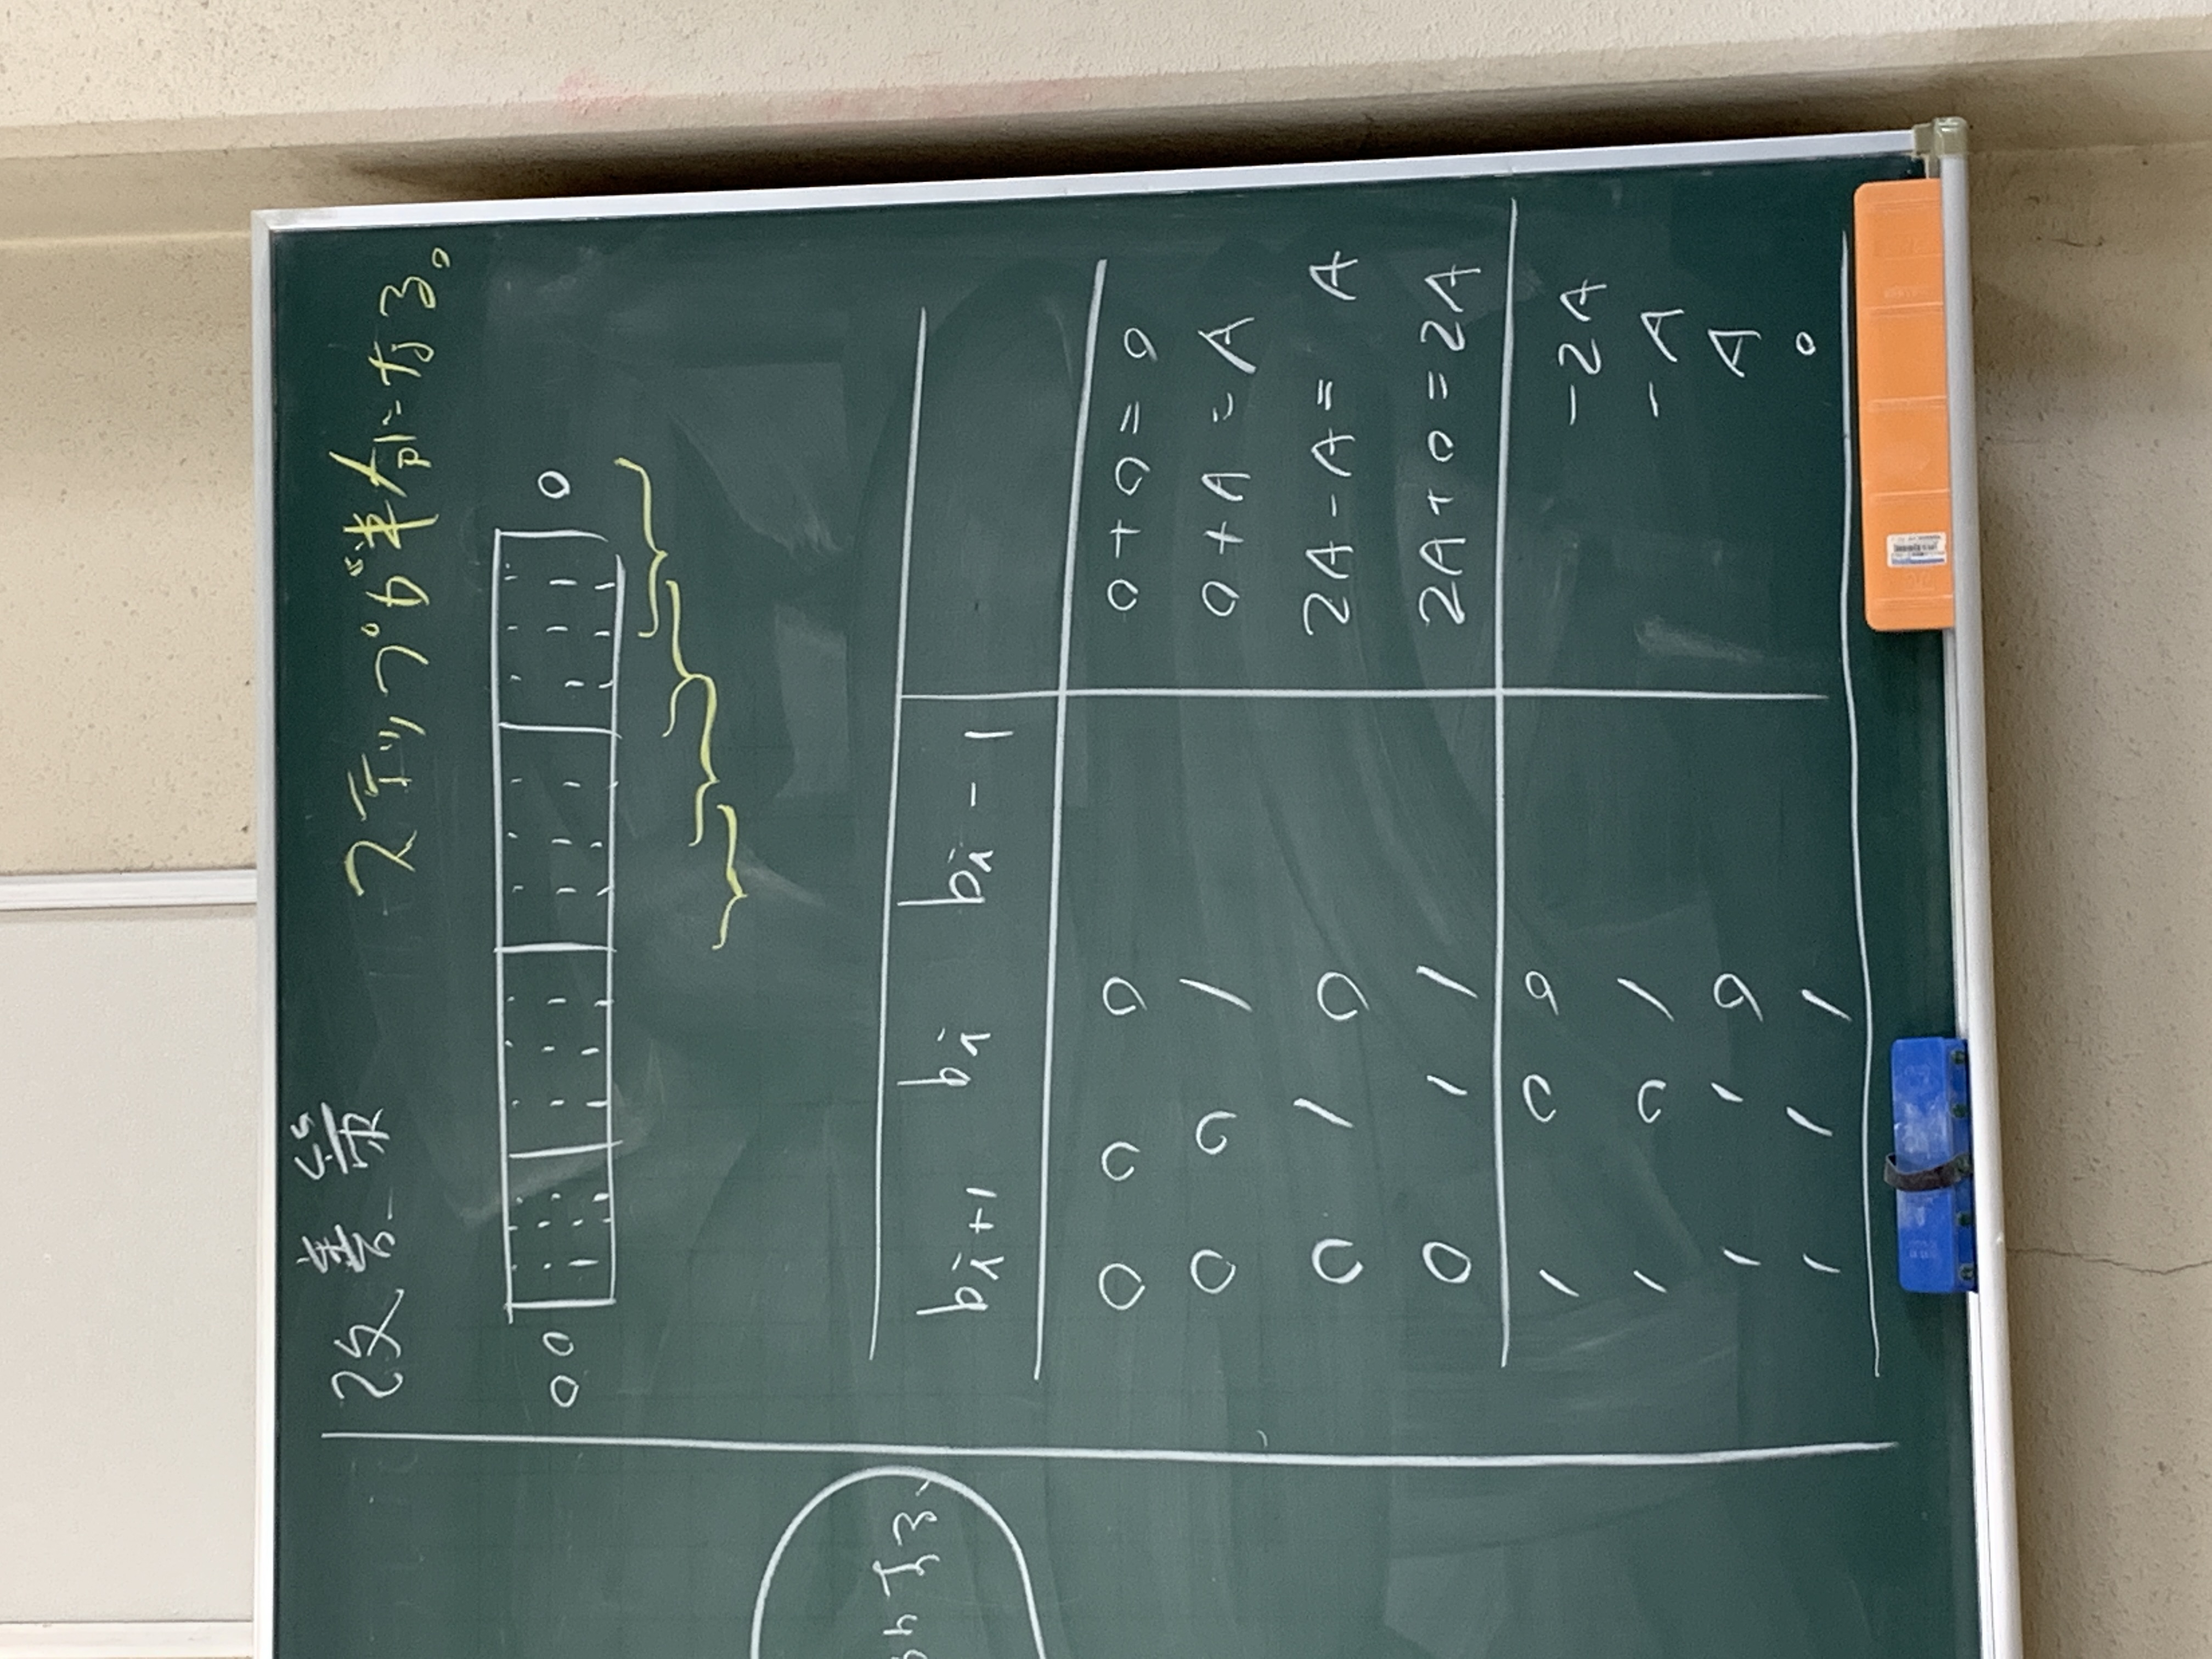 改善策
ステップが半分になる。
00 0
する
bi+1 bi bi-1
0 0 0 0+0=0
0 0 1 0+A=A
0 1 0 2A-A= A
0 1 1 2A+0=2A
1 0 0 -2A
1 0 1 -A
1 1 0 A
1 1 1 0